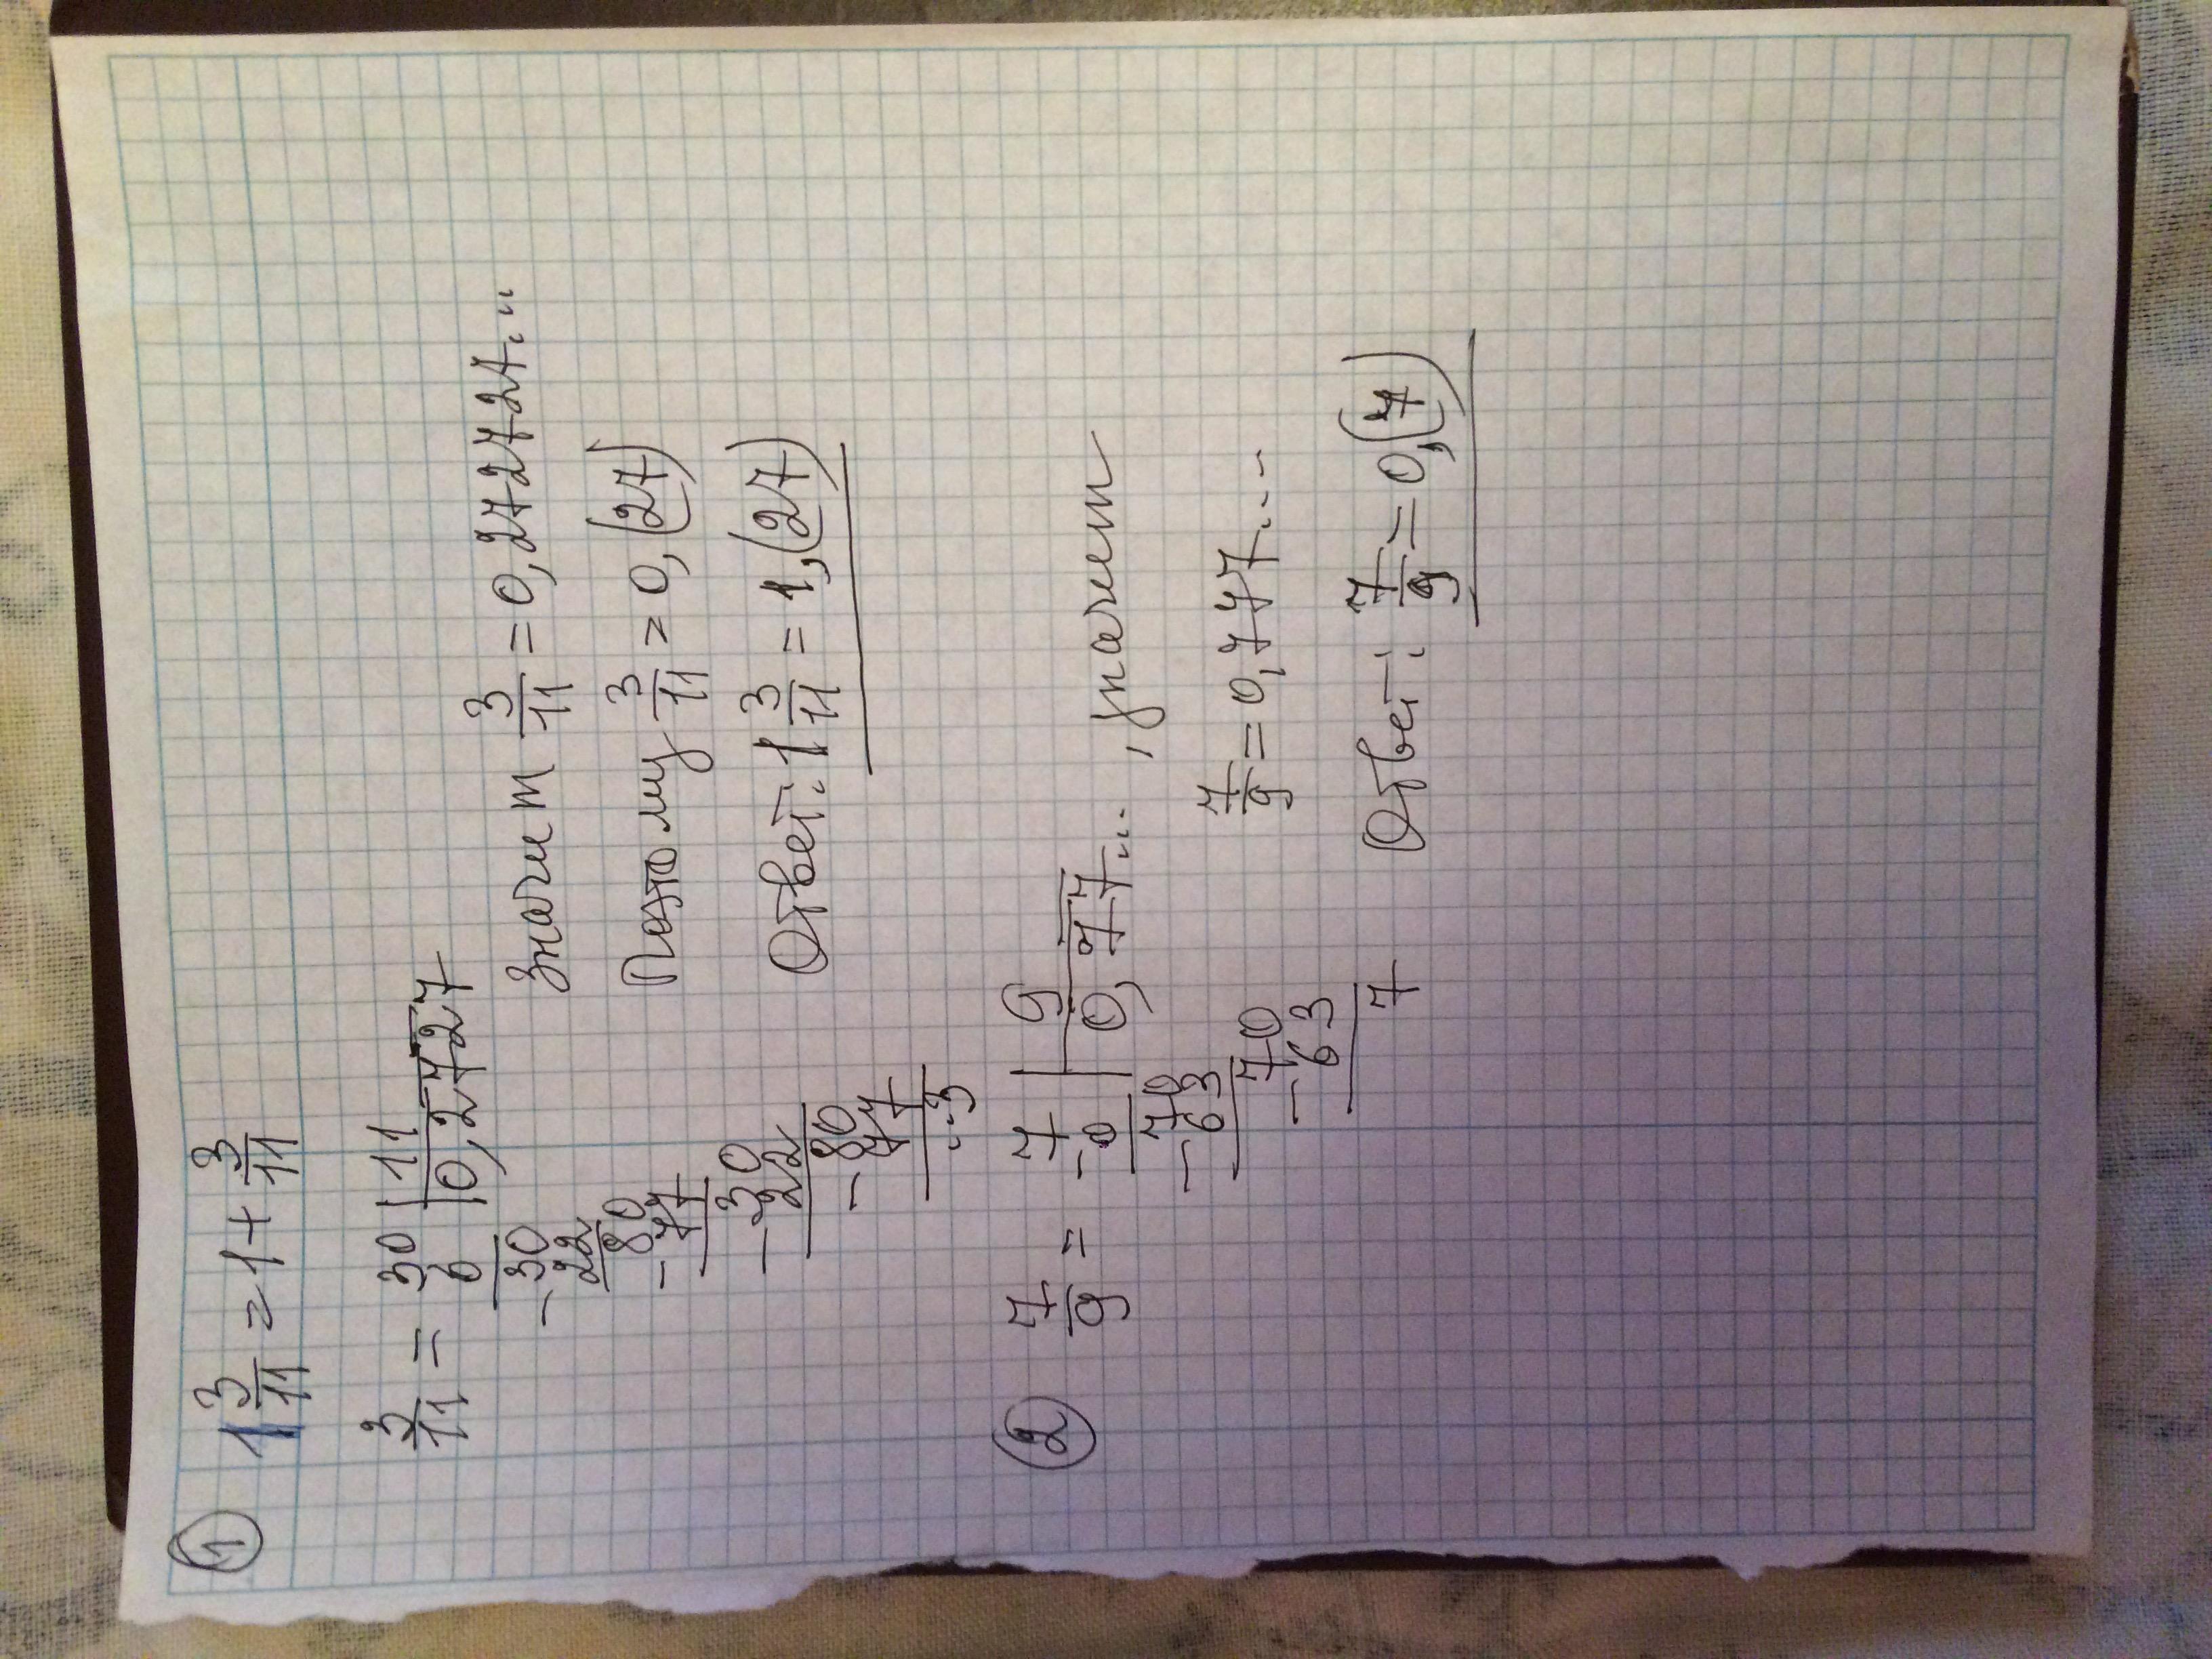 ① 1 3/11 = 1 + 3/11
3/11 = 30 | 11
0 0,2727
-30
22
-80
77
-30
22
-80
77
...3
Значит 3/11 = 0,272727...
Поэтому 3/11 = 0,(27)
Ответ: 1 3/11 = 1,(27)
② 7/9 = 7 | 9
-0 0,777... , значит
-70
63
-70
63
7
7/9 = 0,777...
Ответ: 7/9 = 0,(7)